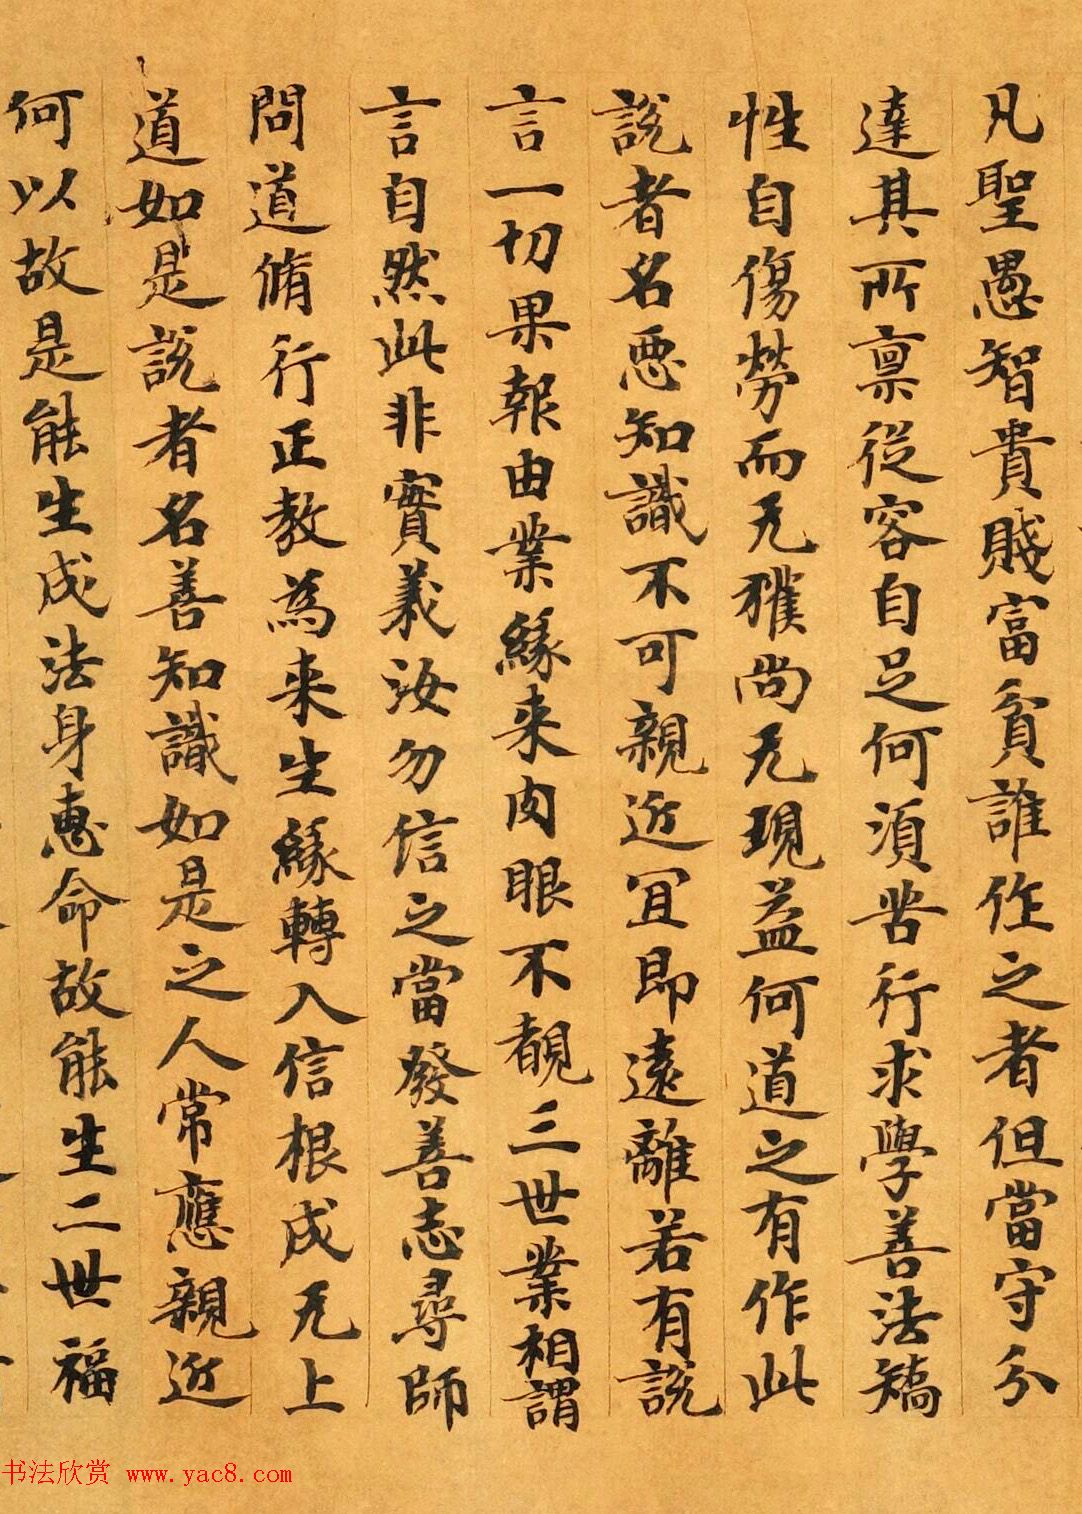 凡聖愚智貴賤富貧誰作之者但當守分
達其所禀從容自足何須苦行求學善法矯
性自傷勞而无獲尚无現益何道之有作此
說者名惡知識不可親近宜即遠離若有說
言一切果報由業緣来肉眼不覩三世業相謂
言自然此非實義汝勿信之當發善志尋師
問道脩行正教為来生緣轉入信根成无上
道如是說者名善知識如是之人常應親近
何以故是能生成法身惠命故能生二世福
书法欣赏 www.yac8.com